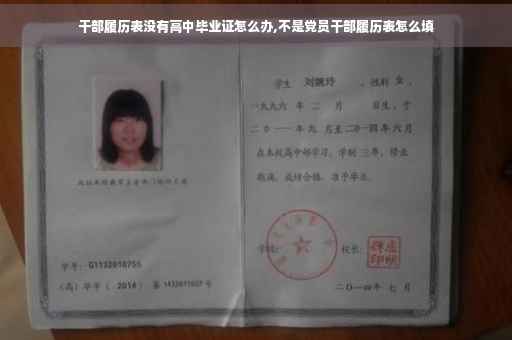 干部履历表没有高中毕业证怎么办,不是党员干部履历表怎么填
学生 刘婉玲 ，性别 女 ，
一九九六 年 二 月 日生，于
二0一一 年 九 月至 二0一四 年 六 月
在本校高中部学习，学制 三 年，修业
期满，成绩合格，准予毕业。
学校： 校长：
学号： G1132010755
(高) 毕字 ( 2014 ) 第 1432011027 号
二〇一四年 七 月